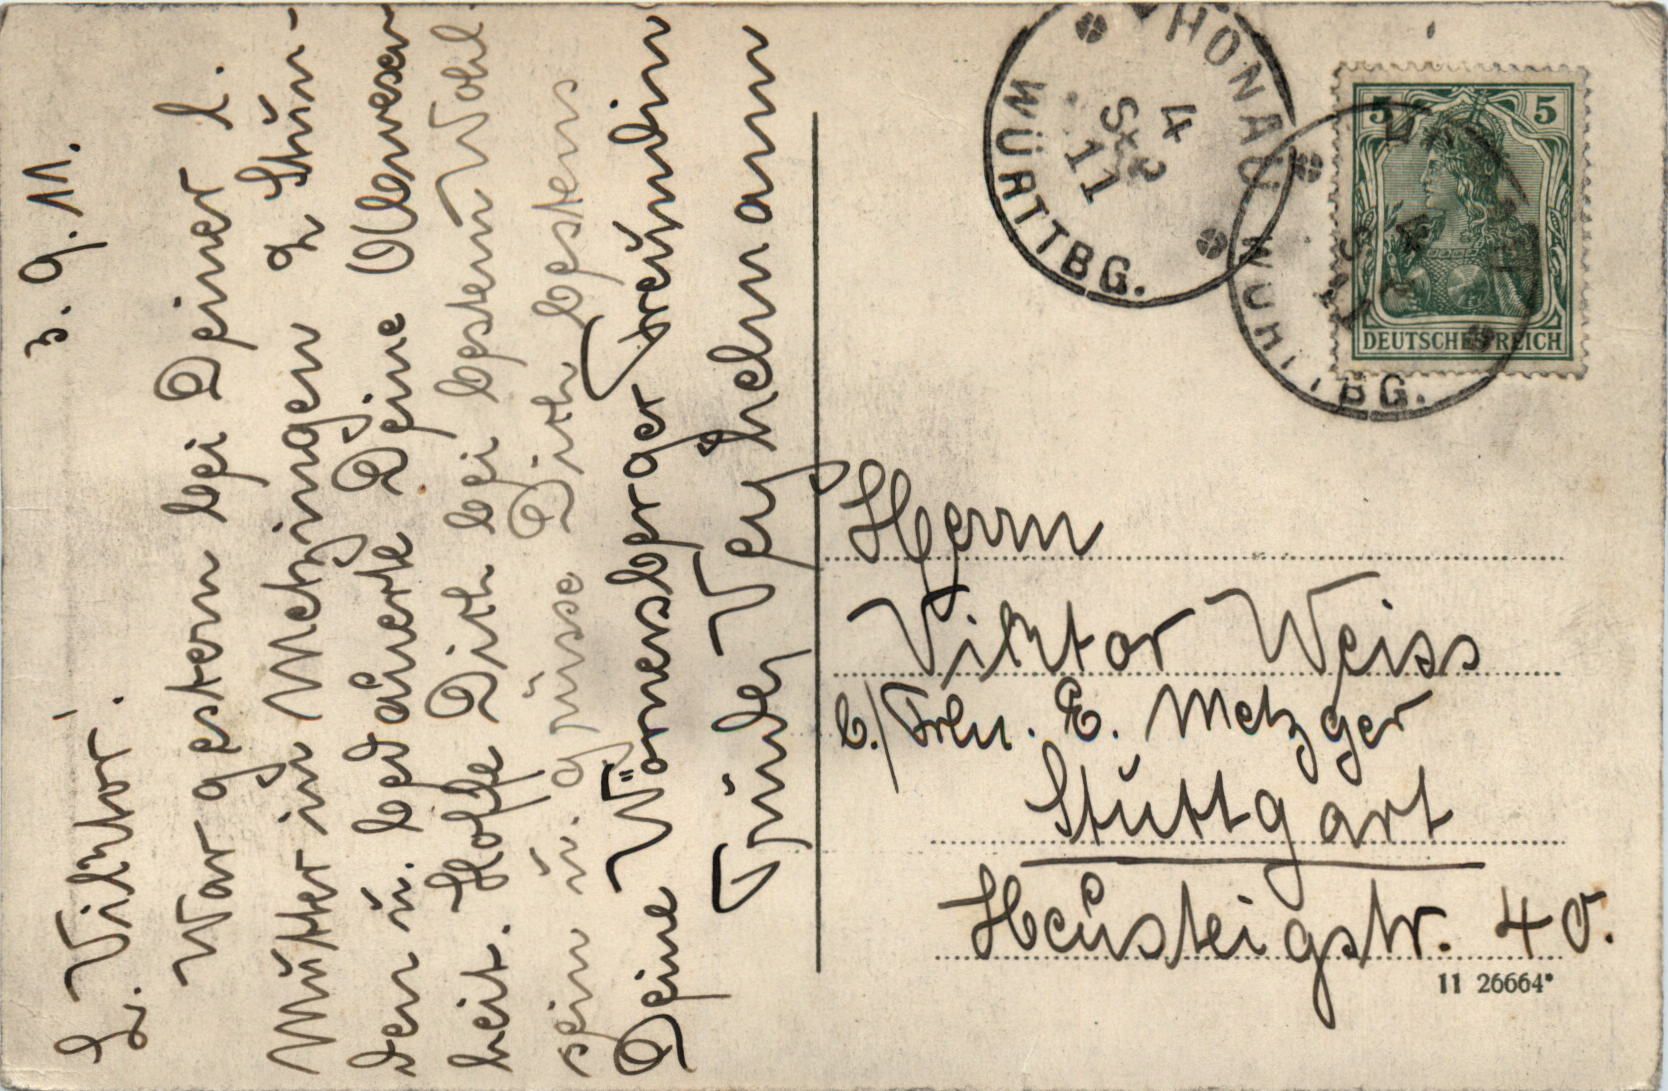 3. 9. 11.
L. Viktor!
War gestern bei Deiner l.
Mutter in Metzingen 2 Stun-
den u. bedauerte Deine Abwesen
heit. Hoffe Dich bei bestem Wohl
sein u. grüsse Dich bestens
Deine Wörnersberger Freundin
HONAU
WÜRTTBG.
4
Sep
11
5 5
DEUTSCHES REICH
WÜRTTBG.
Herrn
Viktor Weiss
b./ Frln. E. Metzger
Stuttgart
Heusteigstr. 40.
11 26664*